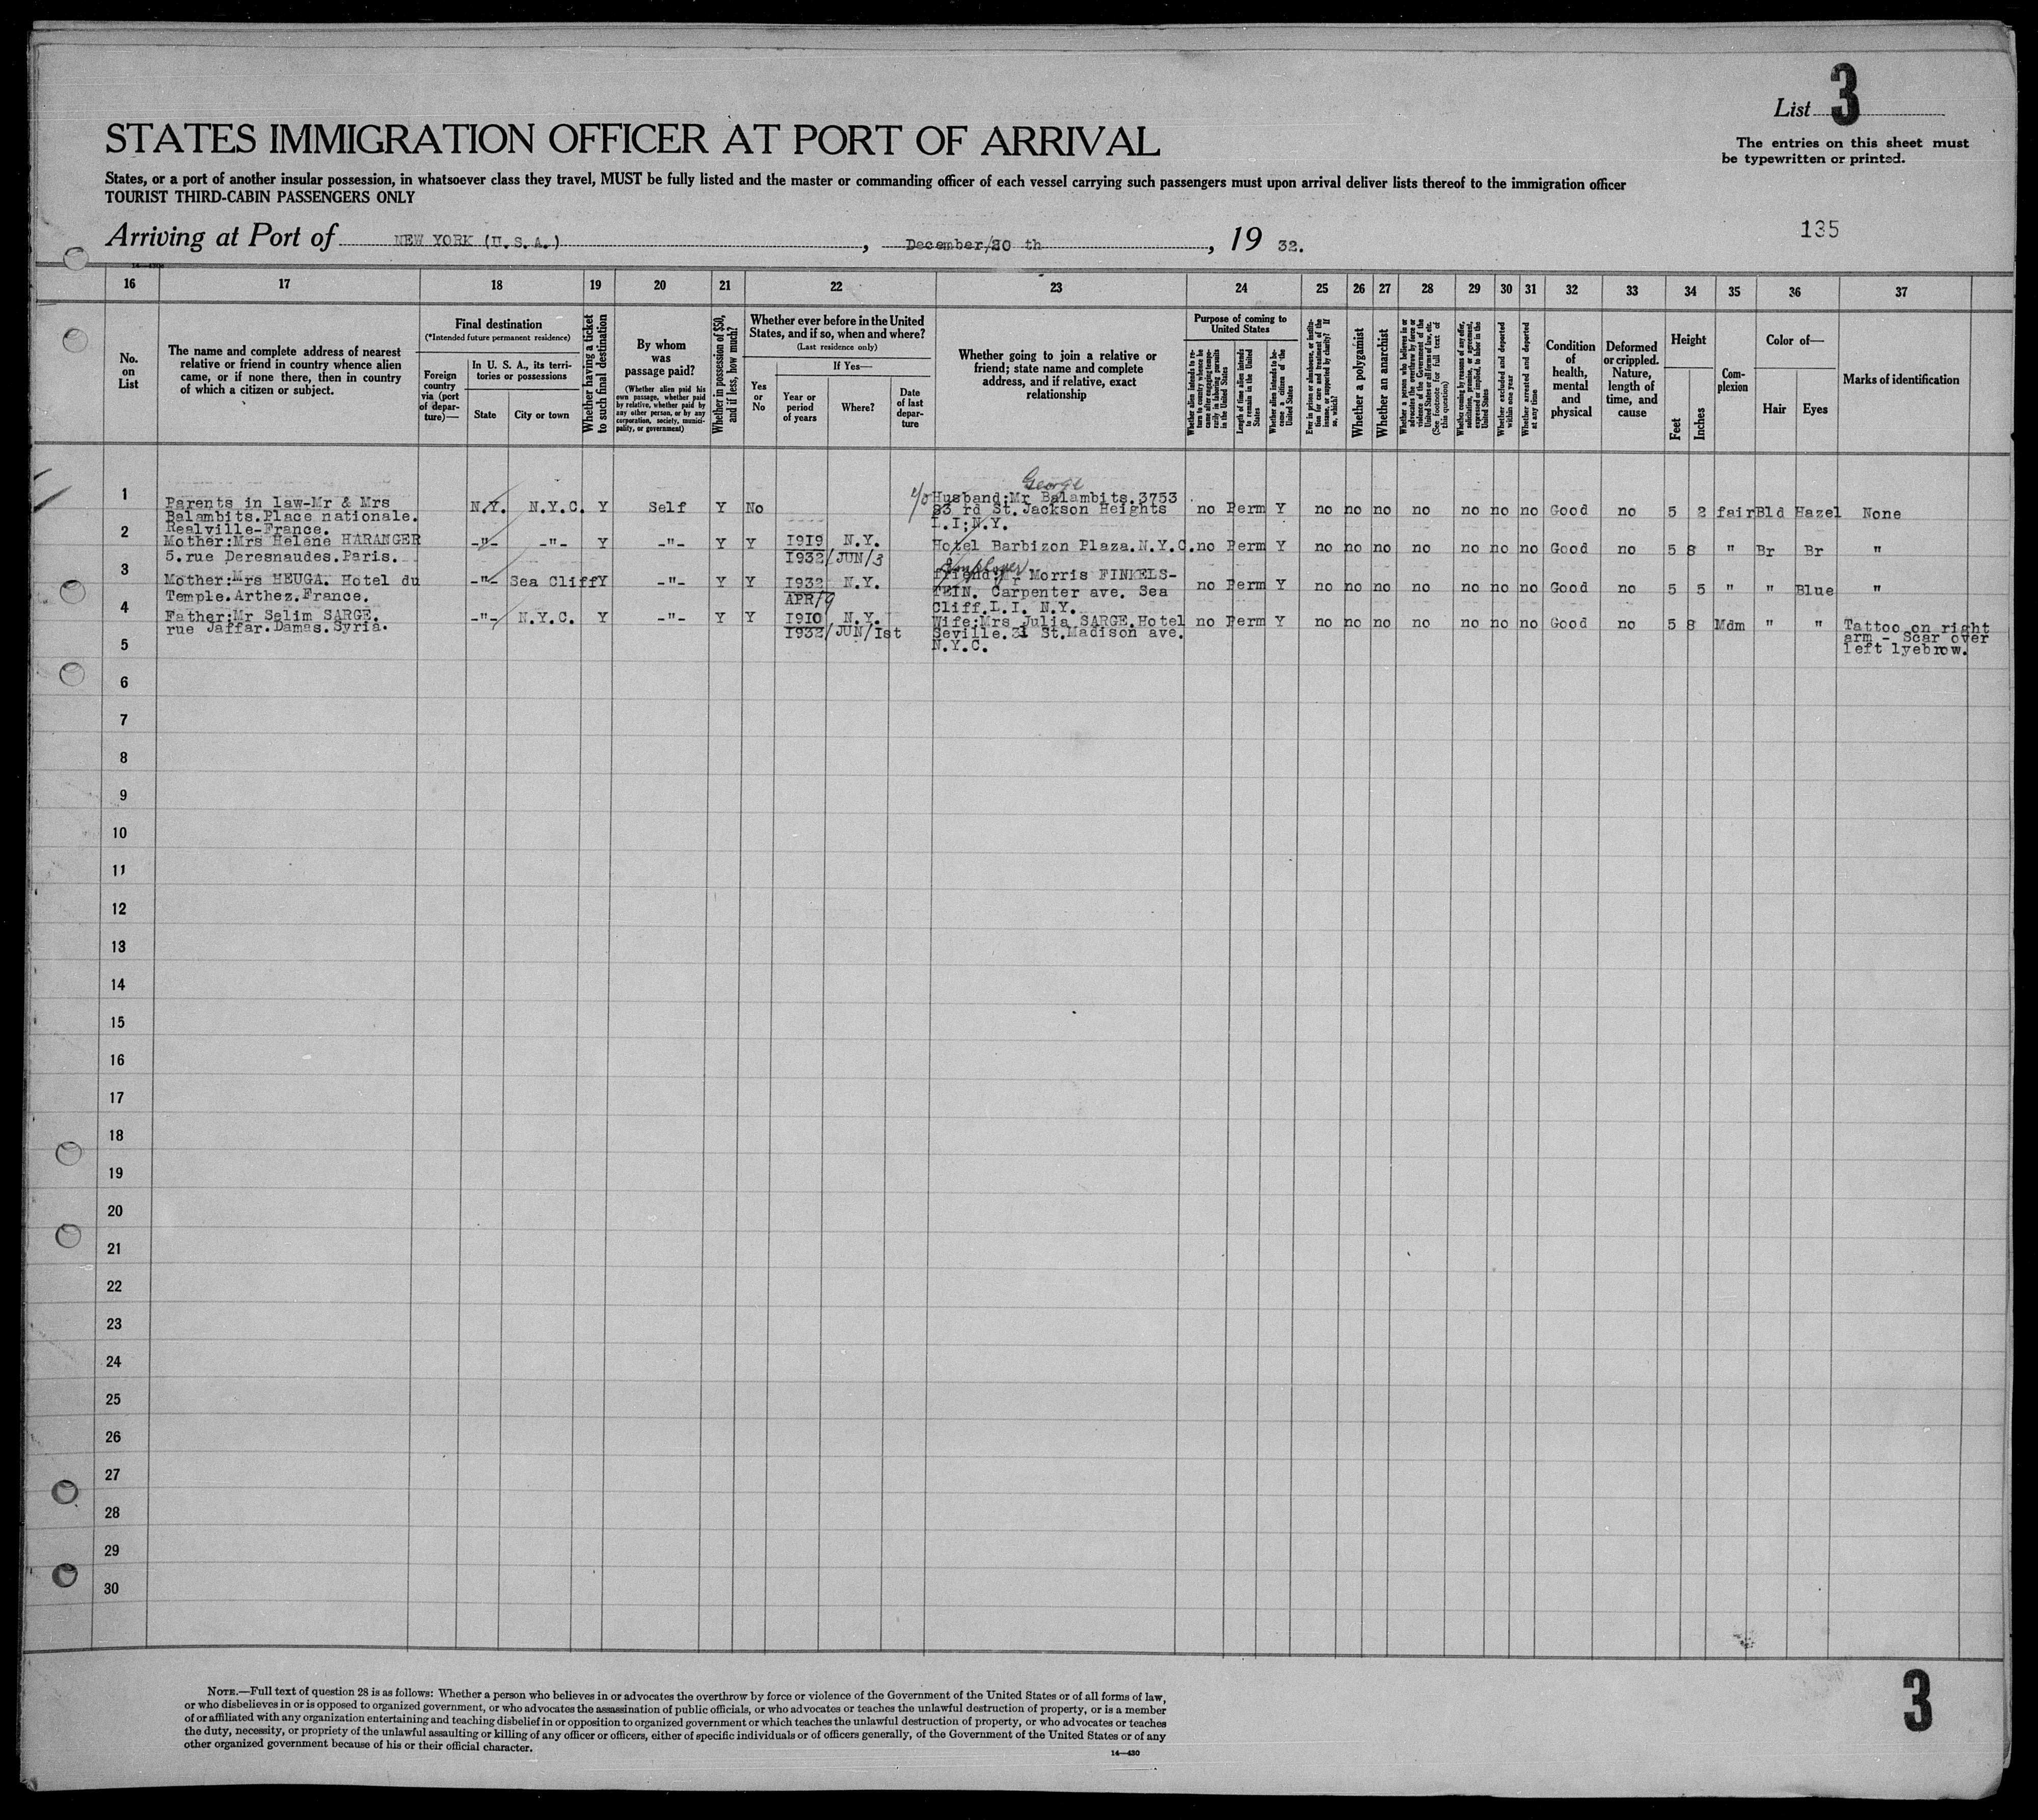 List 3
The entries on this sheet must
be typewritten or printed.
STATES IMMIGRATION OFFICER AT PORT OF ARRIVAL
States, or a port of another insular possession, in whatsoever class they travel, MUST be fully listed and the master or commanding officer of each vessel carrying such passengers must upon arrival deliver lists thereof to the immigration officer
TOURIST THIRD-CABIN PASSENGERS ONLY
135
Arriving at Port of NEW YORK (U.S.A.), December/20 th, 19 32.
16 17 18 19 20 21 22 23 24 25 26 27 28 29 30 31 32 33 34 35 36 37
No.
on
List
The name and complete address of nearest
relative or friend in country whence alien
came, or if none there, then in country
of which a citizen or subject.
Final destination
(*Intended future permanent residence)
Foreign
country
via (port
of depar-
ture)—
In U. S. A., its terri-
tories or possessions
State
City or town
Whether having a ticket
to such final destination
By whom
was
passage paid?
(Whether alien paid his
own passage, whether paid
by relative, whether paid by
any other person, or by any
corporation, society, munici-
pality, or government)
Whether in possession of $50,
and if less, how much?
Whether ever before in the United
States, and if so, when and where?
(Last residence only)
Yes
or
No
If Yes—
Year or
period
of years
Where?
Date
of last
depar-
ture
Whether going to join a relative or
friend; state name and complete
address, and if relative, exact
relationship
Purpose of coming to
United States
Whether alien intends to re-
turn to country whence he
came after engaging tempo-
rarily in laboring pursuits
in the United States
Length of time alien intends
to remain in the United
States
Whether alien intends to be-
come a citizen of the
United States
Ever in prison or almshouse, or institu-
tion for care and treatment of the
insane, or supported by charity? If
so, which?
Whether a polygamist
Whether an anarchist
Whether a person who believes in or
advocates the overthrow by force or
violence of the Government of the
United States or all forms of law, etc.
(See footnote for full text of
this question)
Whether coming by reasons of any offer,
solicitation, promise, or agreement,
expressed or implied, to labor in the
United States
Whether excluded and deported
within one year
Whether arrested and deported
at any time
Condition
of
health,
mental
and
physical
Deformed
or crippled.
Nature,
length of
time, and
cause
Height
Feet
Inches
Com-
plexion
Color of—
Hair
Eyes
Marks of identification
George
1 Parents in law-Mr & Mrs
Balambits.Place nationale.
Realville-France.
N.Y. N.Y.C. Y Self Y No
Husband:Mr Balambits.3753
83 rd St.Jackson Heights
L.I;N.Y.
no Perm Y no no no no no no no Good no 5 2 fair Bld Hazel None
2 Mother:Mrs Helene HARANGER
5.rue Deresnaudes.Paris.
-"- -"- Y -"- Y Y 1919 N.Y.
1932/JUN/3
Hotel Barbizon Plaza.N.Y.C.
no Perm Y no no no no no no no Good no 5 8 " Br Br "
3 Mother:Mrs HEUGA. Hotel du
Temple.Arthez.France.
-"- Sea Cliff Y -"- Y Y 1932 N.Y.
APR/9
Employer
friend:Mr Morris FINKELS-
TEIN. Carpenter ave. Sea
Cliff.L.I. N.Y.
no Perm Y no no no no no no no Good no 5 5 " " Blue "
4 Father:Mr Selim SARGE.
rue Jaffar.Damas.Syria.
-"- N.Y.C. Y -"- Y Y 1910 N.Y.
1932/JUN/1st
Wife:Mrs Julia SARGE.Hotel
Seville.31 St.Madison ave.
N.Y.C.
no Perm Y no no no no no no no Good no 5 8 Mdm " " Tattoo on right
arm - Scar over
left lyebrow.
5
6
7
8
9
10
11
12
13
14
15
16
17
18
19
20
21
22
23
24
25
26
27
28
29
30
NOTE.—Full text of question 28 is as follows: Whether a person who believes in or advocates the overthrow by force or violence of the Government of the United States or of all forms of law,
or who disbelieves in or is opposed to organized government, or who advocates the assassination of public officials, or who advocates or teaches the unlawful destruction of property, or is a member
of or affiliated with any organization entertaining and teaching disbelief in or opposition to organized government or which teaches the unlawful destruction of property, or who advocates or teaches
the duty, necessity, or propriety of the unlawful assaulting or killing of any officer or officers, either of specific individuals or of officers generally, of the Government of the United States or of any
other organized government because of his or their official character.
14—430
3